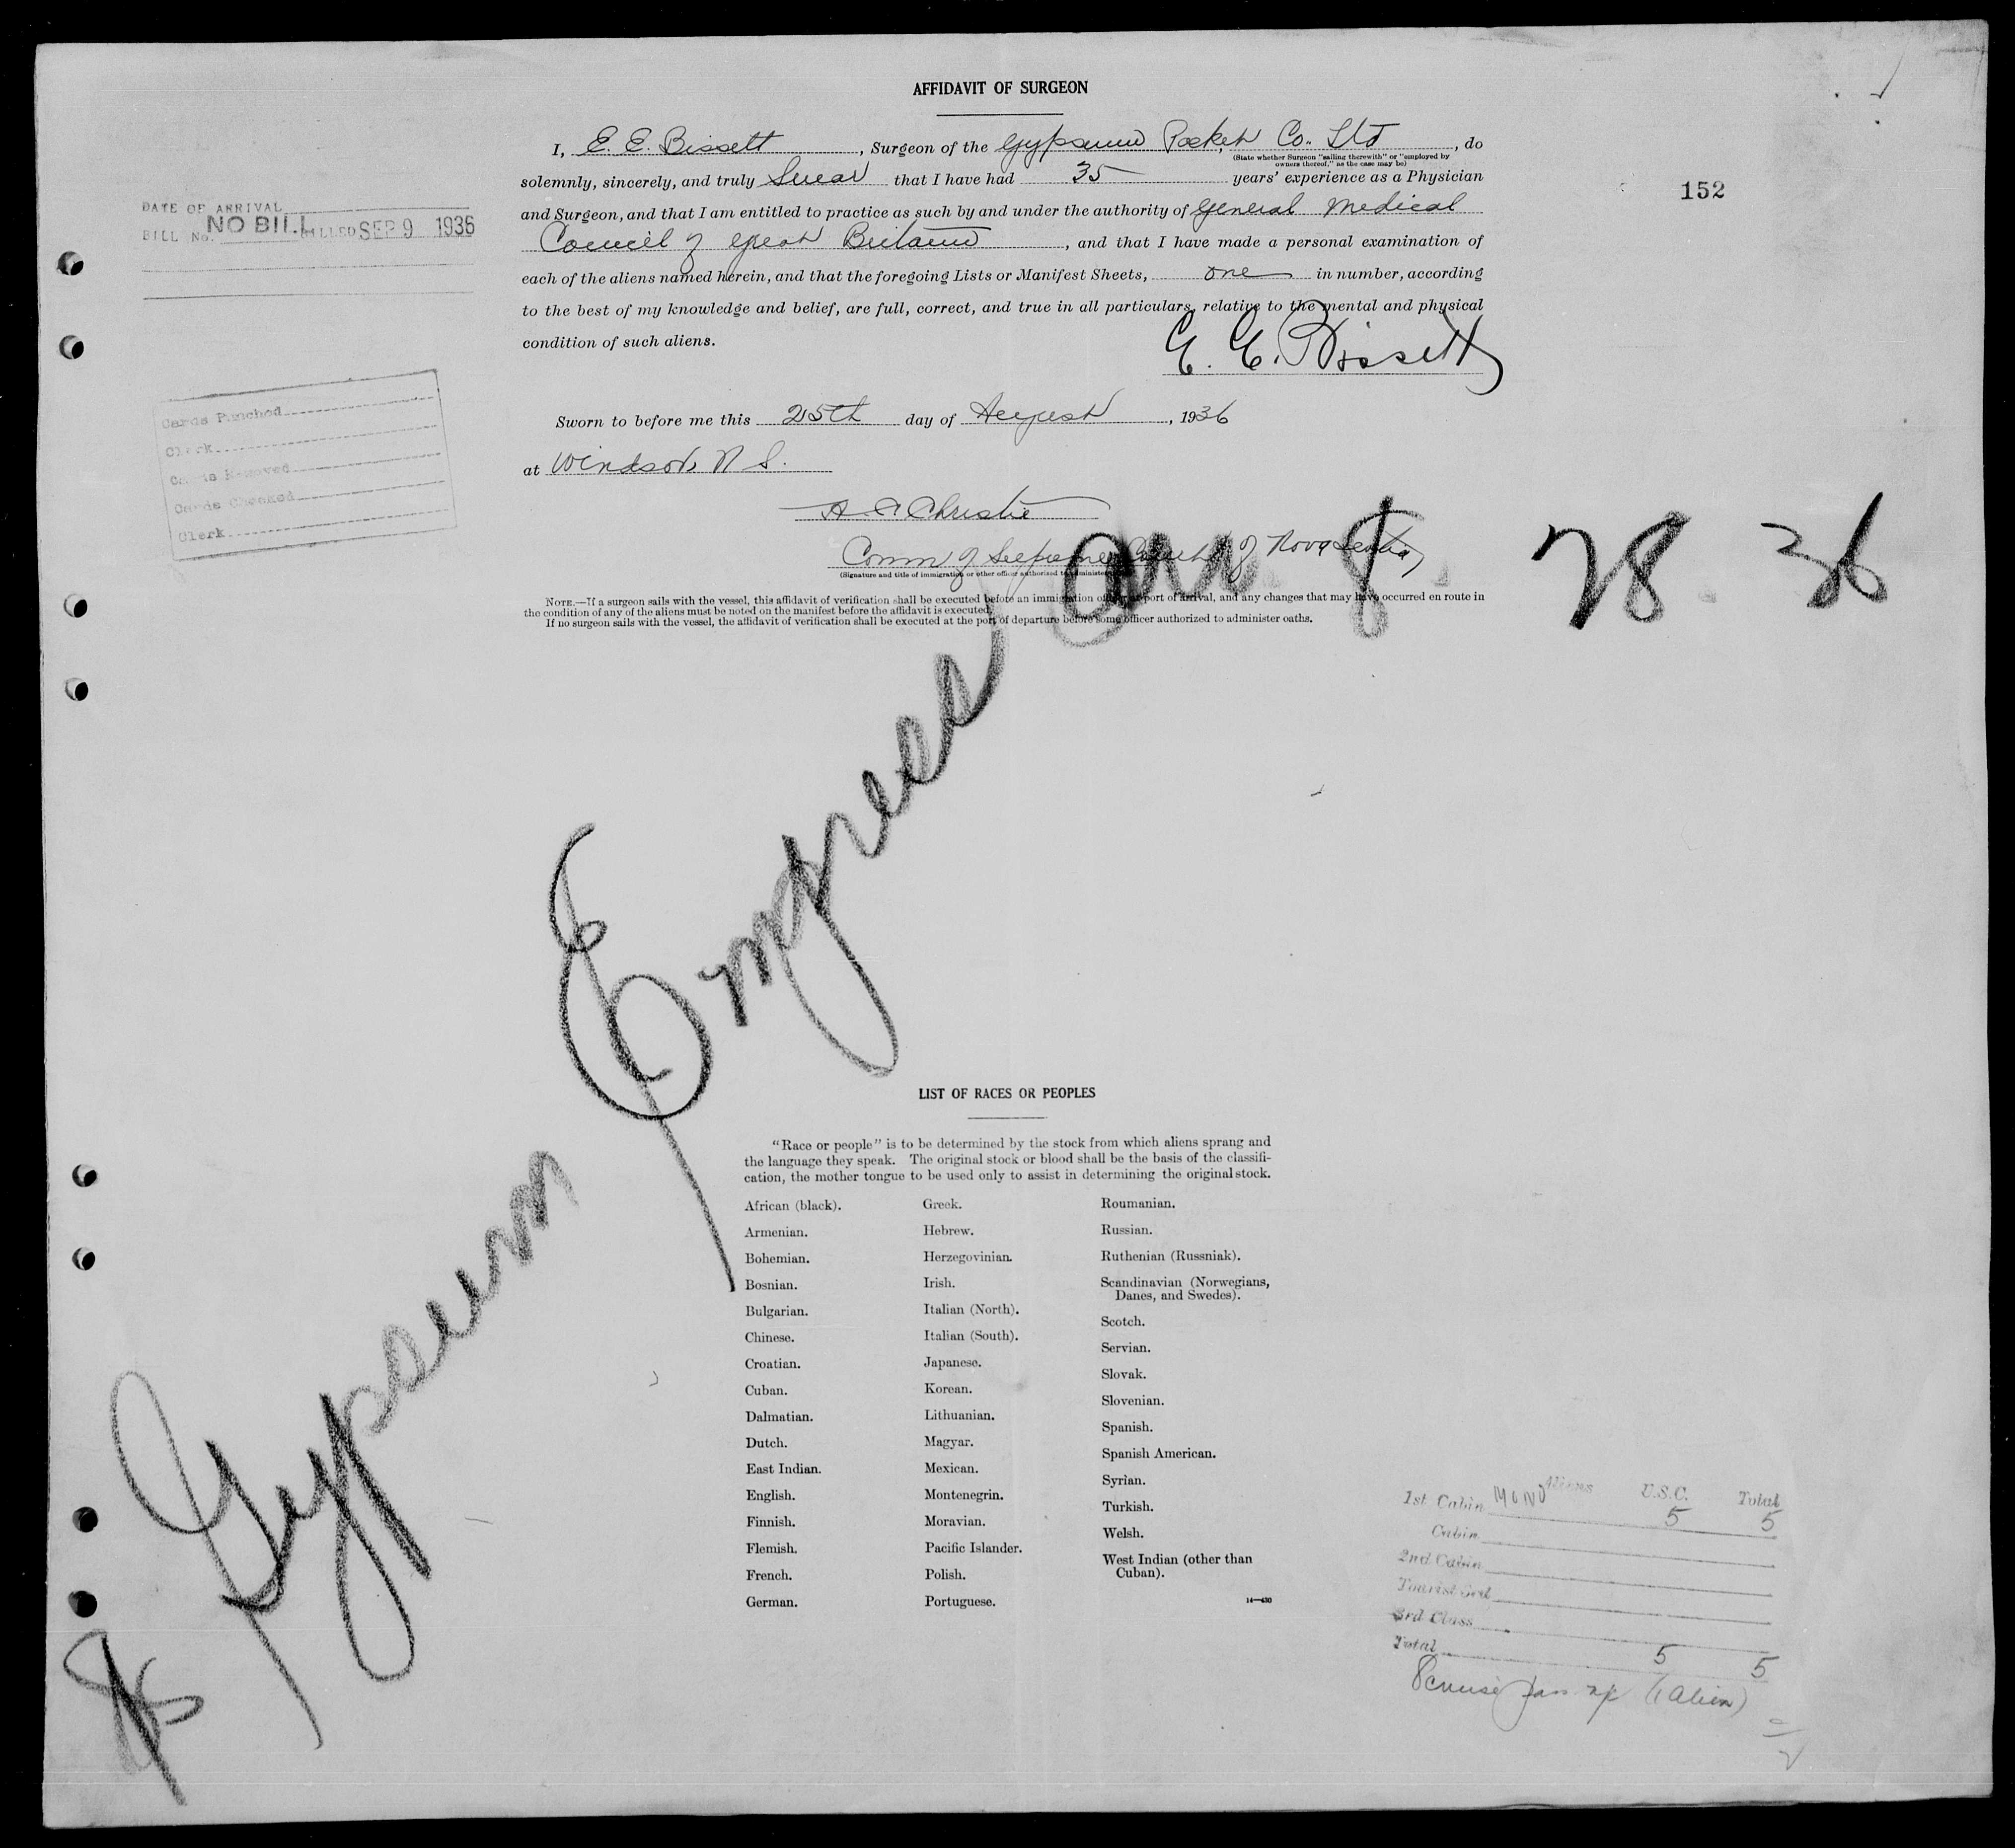 AFFIDAVIT OF SURGEON
I, E. E. Bissett, Surgeon of the Gypsum Packet Co. Ltd, do
(State whether Surgeon "sailing therewith" or "employed by
owners thereof," as the case may be)
solemnly, sincerely, and truly Swear that I have had 35 years' experience as a Physician
and Surgeon, and that I am entitled to practice as such by and under the authority of General Medical
Council of Great Britain, and that I have made a personal examination of
each of the aliens named herein, and that the foregoing Lists or Manifest Sheets, one in number, according
to the best of my knowledge and belief, are full, correct, and true in all particulars, relative to the mental and physical
condition of such aliens.
E. E. Bissett
152
DATE OF ARRIVAL
BILL No. NO BILL BILLED SEP 9 1936
Cards Punched
Clerk
Cards Removed
Cards Checked
Clerk
Sworn to before me this 25th day of August, 1936
at Windsor, N S.
Christie
Comm of Supreme Court of Nova Scotia
(Signature and title of immigration or other officer authorized to administer
NOTE.—If a surgeon sails with the vessel, this affidavit of verification shall be executed before an immigration officer at port of arrival, and any changes that may have occurred en route in
the condition of any of the aliens must be noted on the manifest before the affidavit is executed.
If no surgeon sails with the vessel, the affidavit of verification shall be executed at the port of departure before some officer authorized to administer oaths.
Gypsum Empress
arr 8 28 36
LIST OF RACES OR PEOPLES
"Race or people" is to be determined by the stock from which aliens sprang and
the language they speak. The original stock or blood shall be the basis of the classifi-
cation, the mother tongue to be used only to assist in determining the original stock.
African (black).
Armenian.
Bohemian.
Bosnian.
Bulgarian.
Chinese.
Croatian.
Cuban.
Dalmatian.
Dutch.
East Indian.
English.
Finnish.
Flemish.
French.
German.
Greek.
Hebrew.
Herzegovinian.
Irish.
Italian (North).
Italian (South).
Japanese.
Korean.
Lithuanian.
Magyar.
Mexican.
Montenegrin.
Moravian.
Pacific Islander.
Polish.
Portuguese.
Roumanian.
Russian.
Ruthenian (Russniak).
Scandinavian (Norwegians,
Danes, and Swedes).
Scotch.
Servian.
Slovak.
Slovenian.
Spanish.
Spanish American.
Syrian.
Turkish.
Welsh.
West Indian (other than
Cuban).
14—430
Aliens U.S.C. Total
1st Cabin 5 5
Cabin
2nd Cabin
3rd Class
Total 5 5
8 cruise (1 alien)